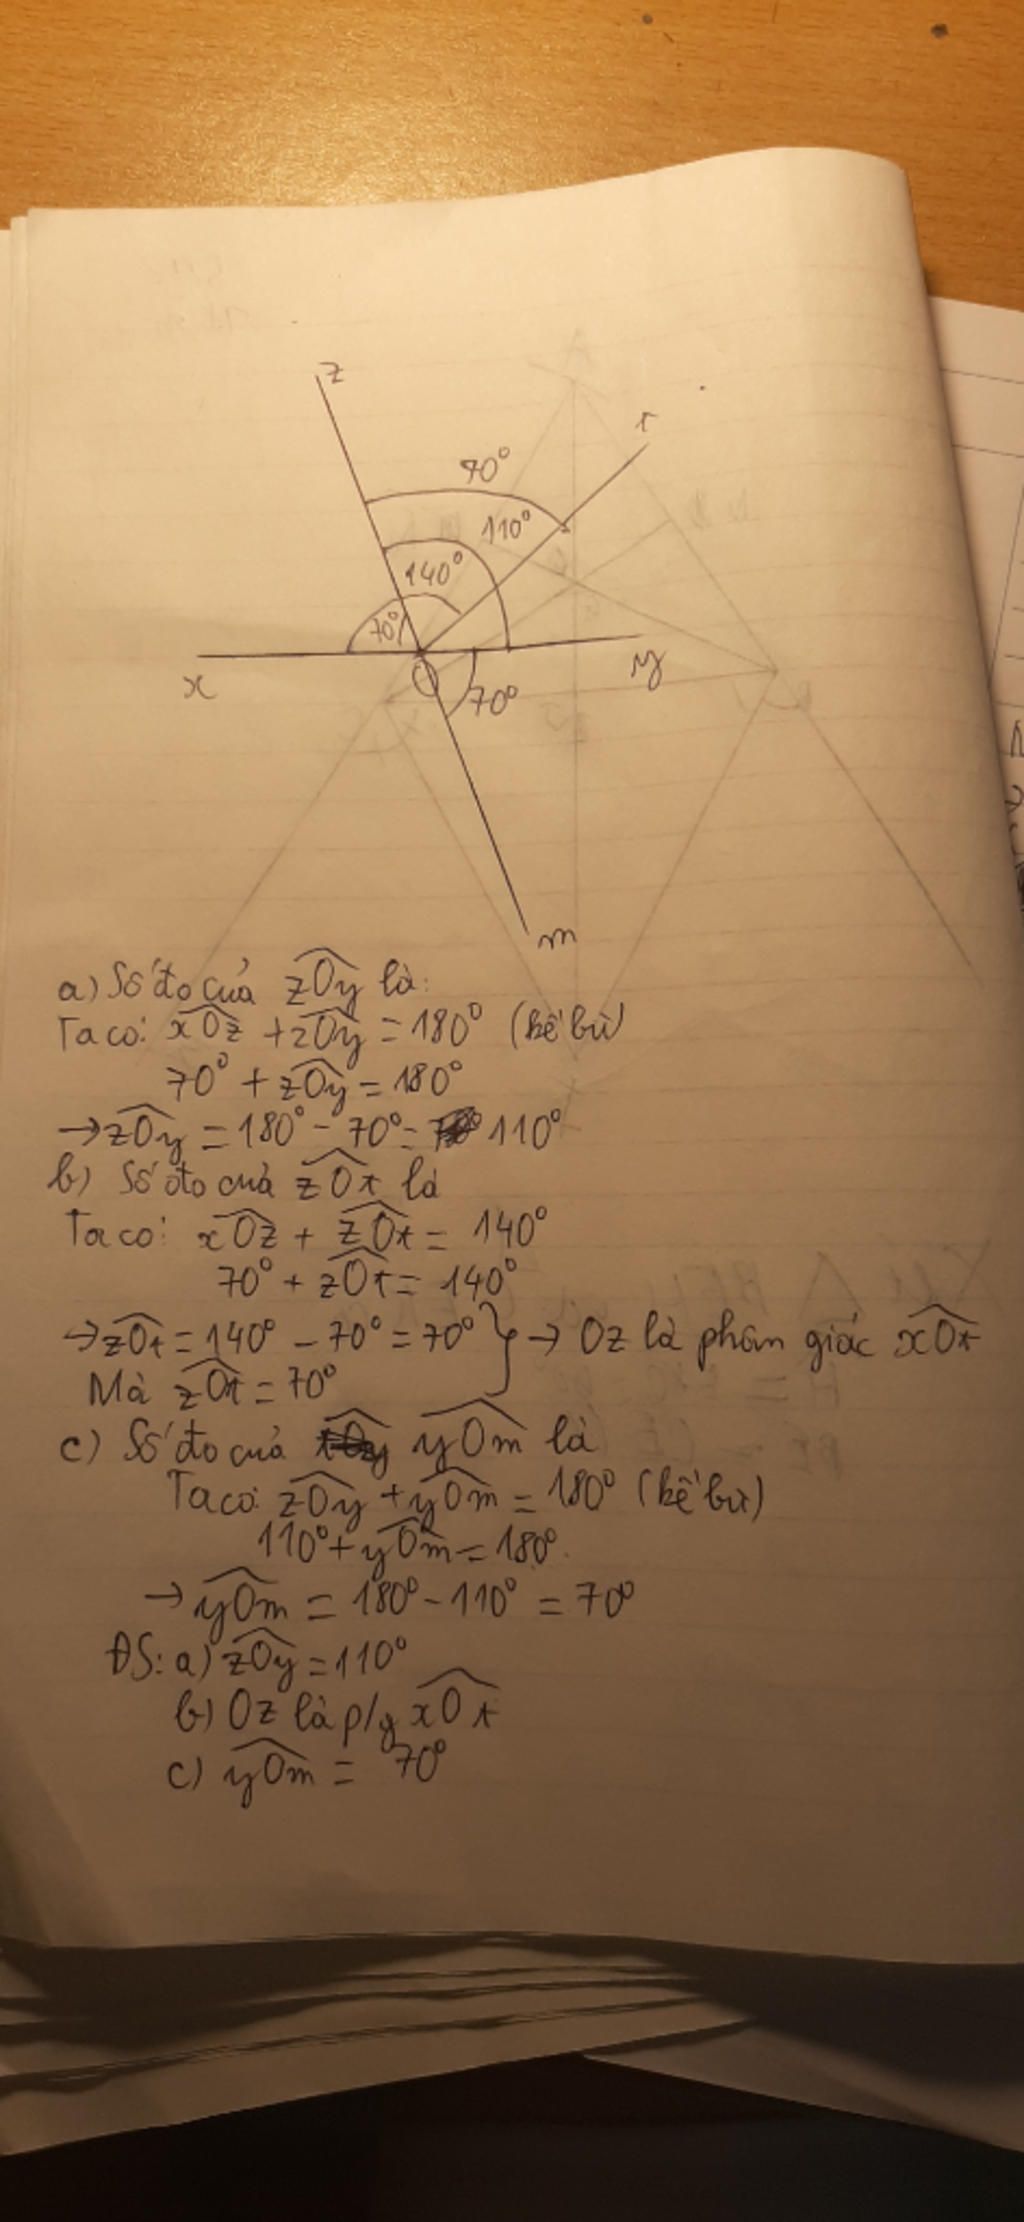 z
t
70°
110°
140°
70°
x
O
y
70°
m
a) Số đo của zOy là:
Ta có: xOz + zOy = 180° (kề bù)
70° + zOy = 180°
→ zOy = 180° - 70° = 110°
b) Số đo của zOt là
Ta có: xOz + zOt = 140°
70° + zOt = 140°
→ zOt = 140° - 70° = 70° } → Oz là phân giác xOt
Mà zOt = 70°
c) Số đo của yOm là
Ta có: zOy + yOm = 180° (kề bù)
110° + yOm = 180°.
→ yOm = 180° - 110° = 70°
ĐS: a) zOy = 110°
b) Oz là p/g xOt
c) yOm = 70°